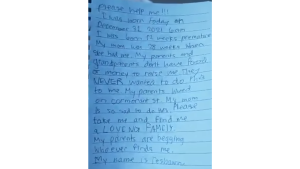 Please help me!!!
I was born today on
December 31 2021 6am
I was born 12 weeks premature
My mom was 28 weeks when
she had me. My parents and
grandparents don't have food
or money to raise me. They
NEVER wanted to do this
to me. My parents
on
is so sad to do this. Please
take me and find me
a LOVING FAMILY
My parents are begging
whoever finds me.
My name is